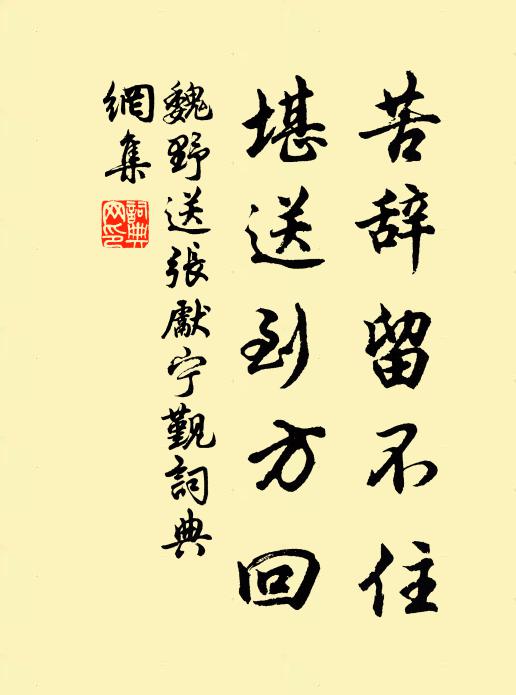 苦辞留不住
堪送到方回
魏野送張獻宁覲詞典
網集
詞典
网印